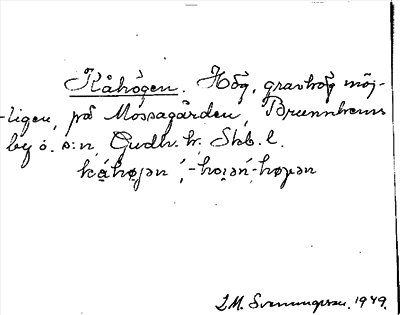 Kåhögen. Hög, gravhög möj-
-ligen, på Mossagården, Brunnhems
by o. s:n, Gudh. hr. Skb. l.
kǻhø̀jən, -hoi̯ən, -høyən
L. M. Svennungsson. 1949.